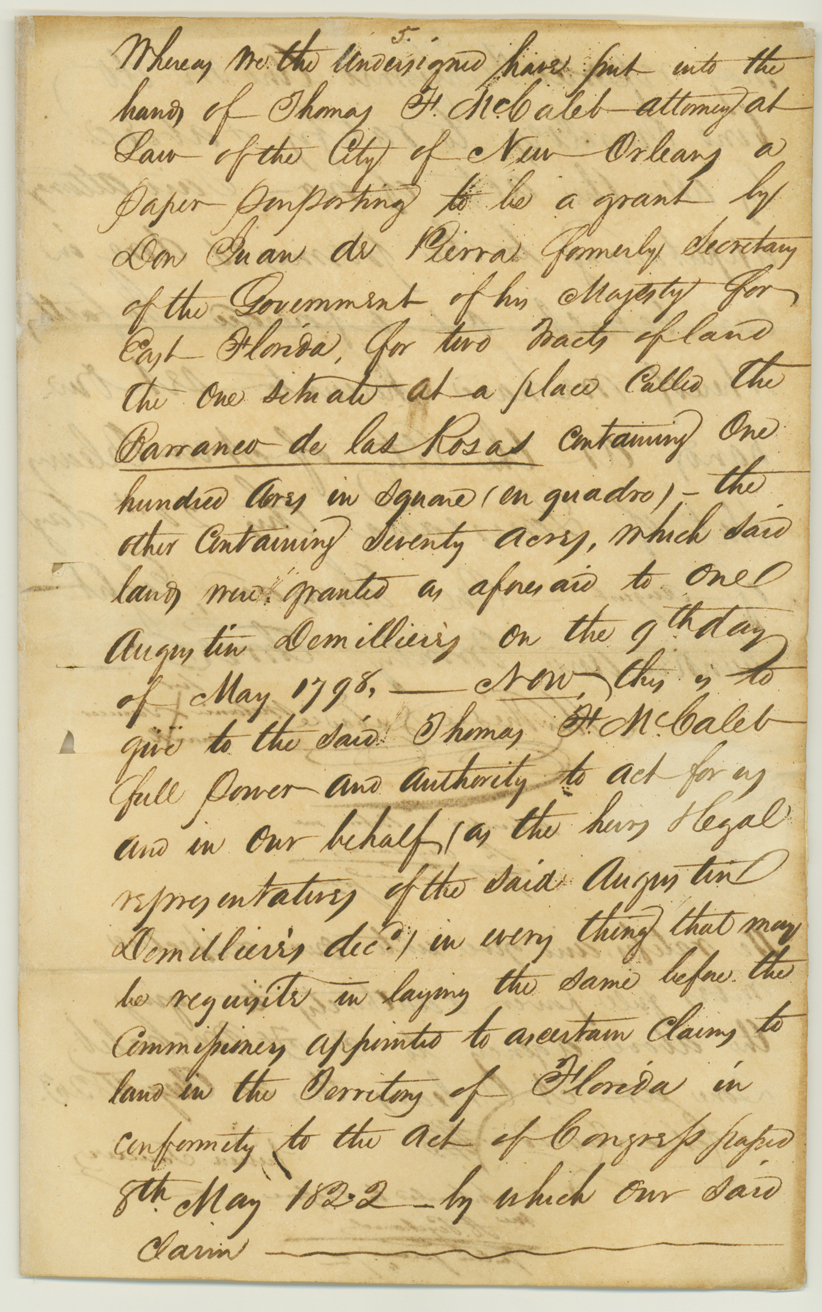 5.
Whereas We the Undersigned have put into the
hands of Thomas F. McCaleb attorney at
Law of the City of New Orleans a
Paper purporting to be a grant by
Don Juan de Pierra formerly Secretary
of the Government of his Majesty for
East Florida, for two Tracts of land
the One situate at a place Called the
Barranco de las Rosas Containing One
hundred Acres in Square (en quadro) – the
other Containing Seventy Acres, which said
lands were granted as aforesaid to One
Augustin Demillieres on the 9th day
of May 1798, — Now this is to
give to the said Thomas F. McCaleb
full power and authority to act for us
and in our behalf (as the heirs & legal
representatives of the said Augustin
Demilliere's decd.) in every thing that may
be requisite in laying the same before the
Commissioners appointed to ascertain Claims to
land in the Territory of Florida in
conformity to the Act of Congress passed
8th May 1822 – by which our said
Claim —